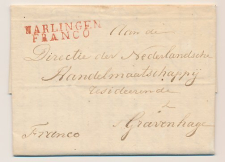 HARLINGEN
FRANCO
Aan de
Directie der Nederlandsche
Handelmaatschappij
residerende
te
Franco
s Gravenhage